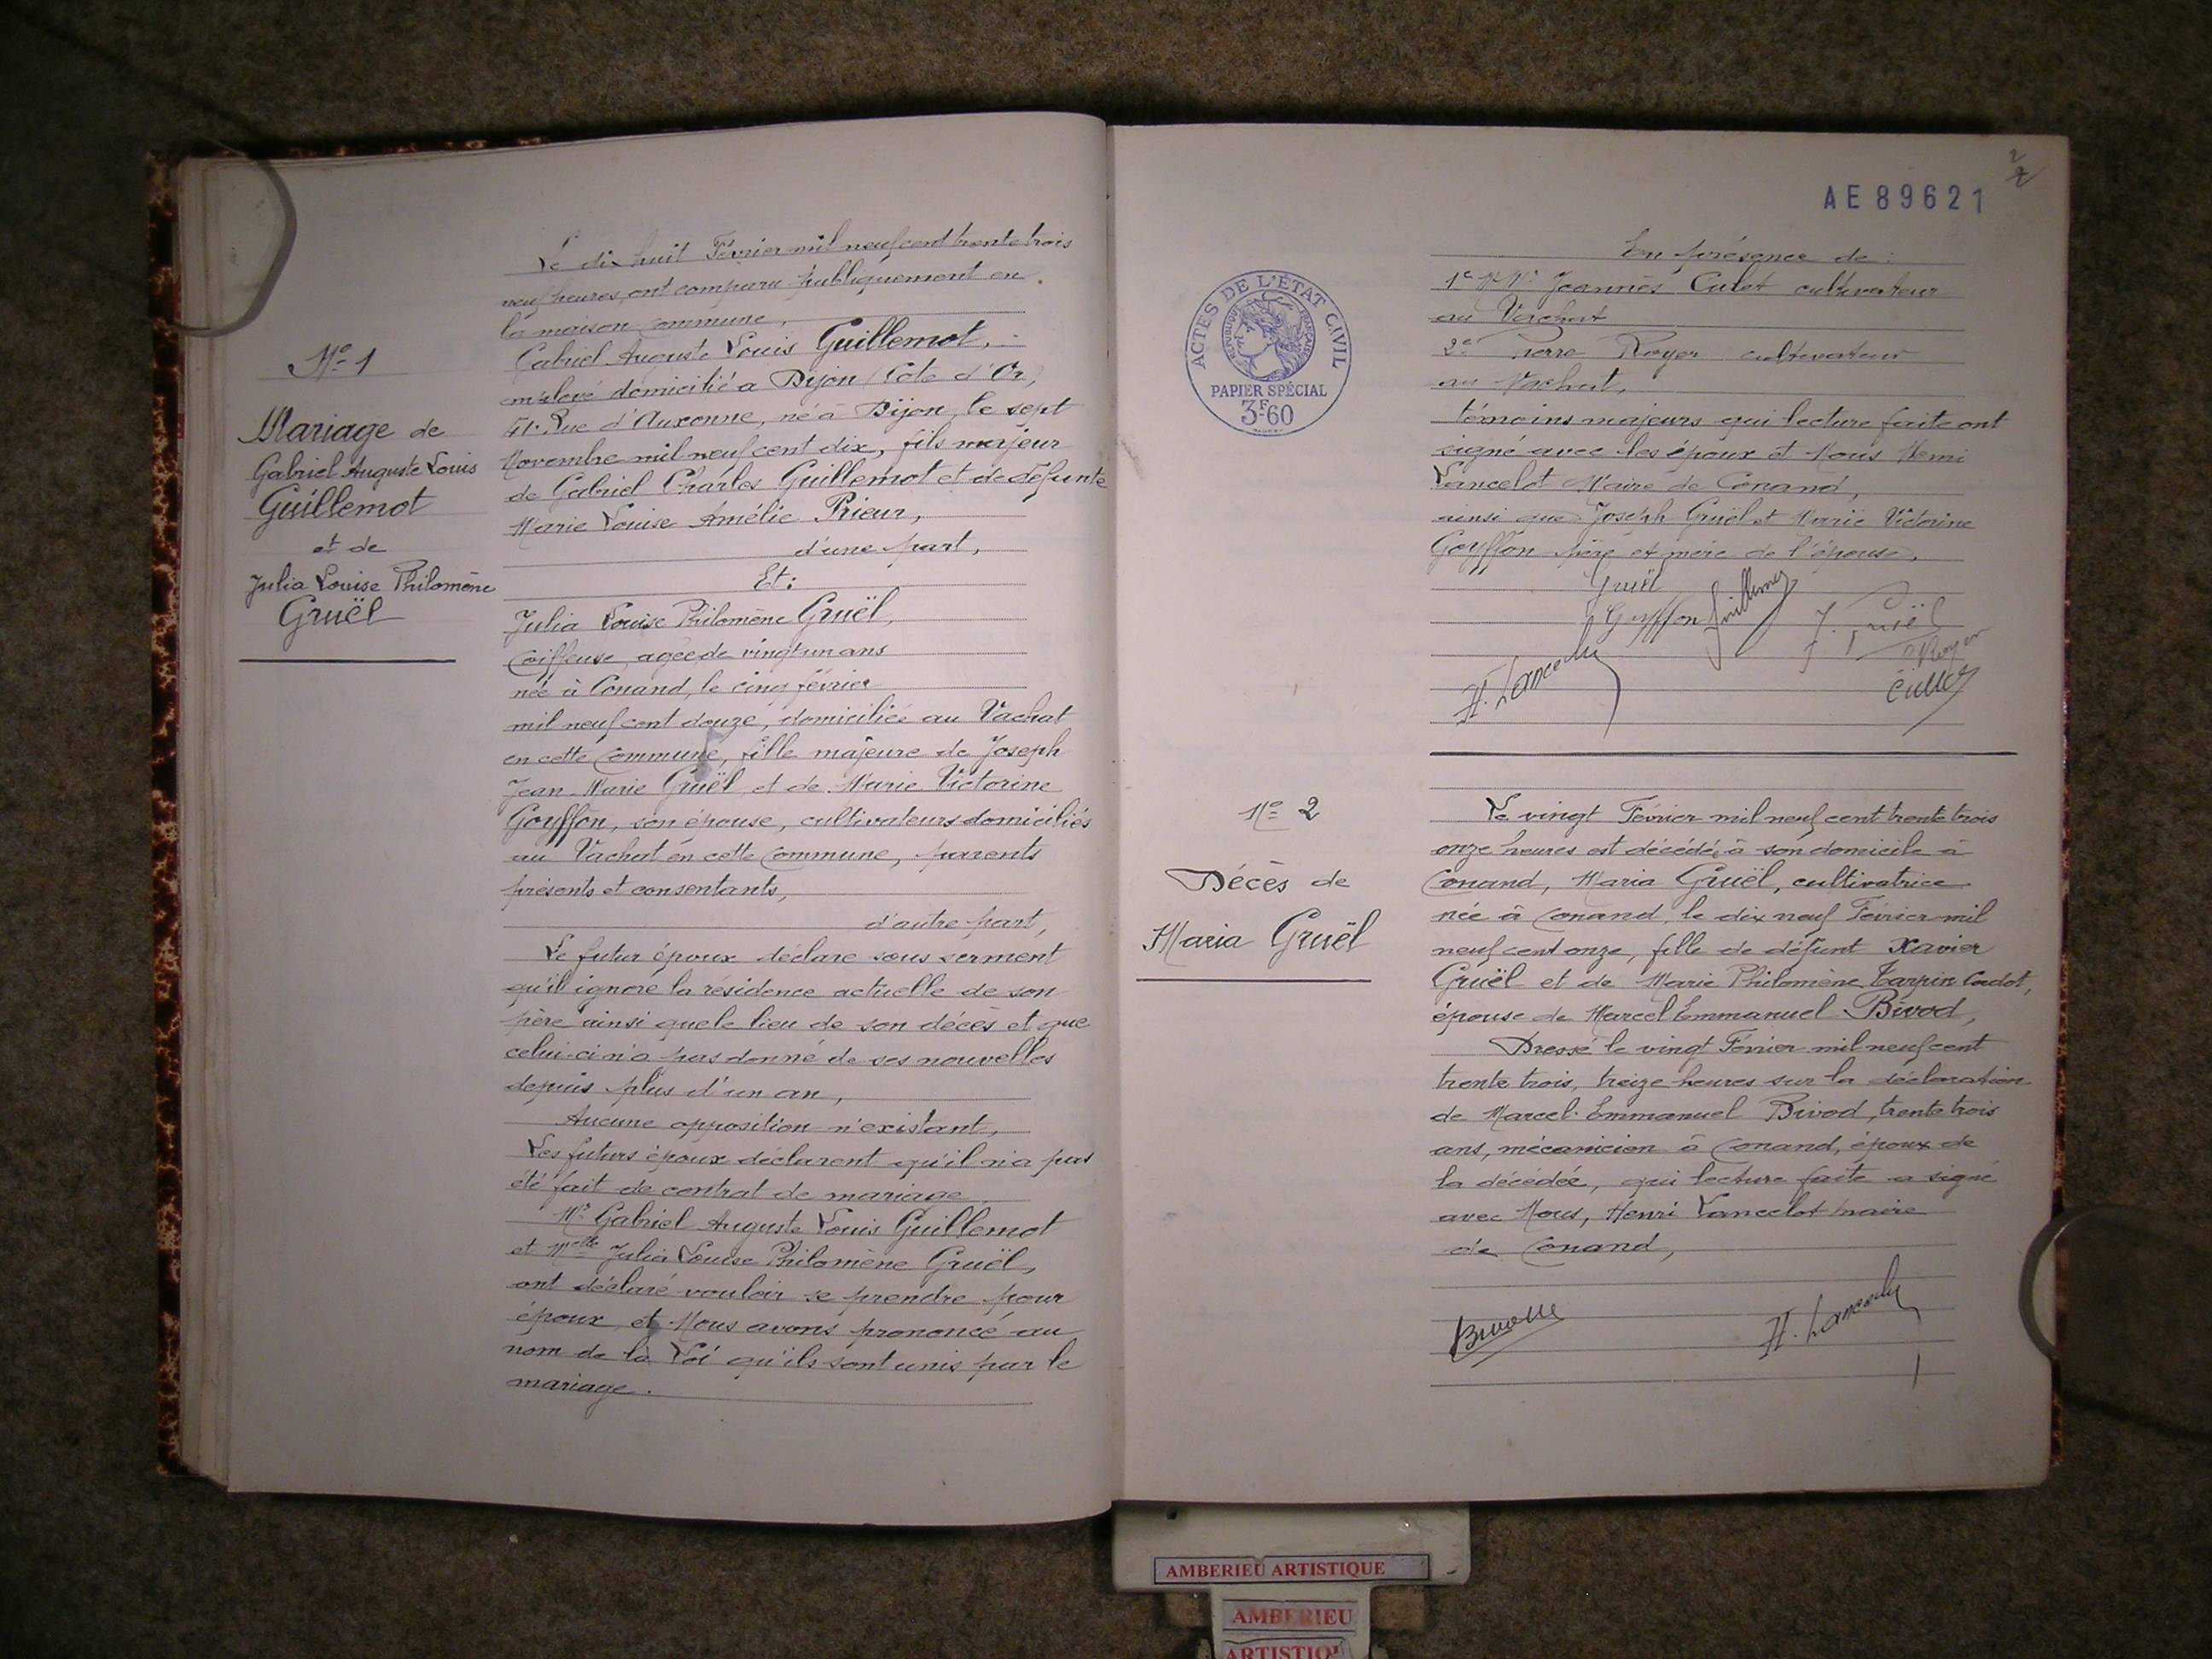 Nº 1
Mariage de
Gabriel Auguste Louis
Guillemot
et de
Julia Louise Philomène
Gruël
Le dix huit Février mil neuf cent trente trois
neuf heures, ont comparu publiquement en
la maison commune,
Gabriel Auguste Louis Guillemot,
employé domicilié à Dijon (Côte d'Or,)
41 Rue d'Auxonne, né à Dijon, le sept
Novembre mil neuf cent dix, fils majeur
de Gabriel Charles Guillemot et de défunte
Marie Louise Amélie Prieur,
d'une part,
Et:
Julia Louise Philomène Gruël,
Coiffeuse, agée de vingt un ans
née à Conand, le cinq février
mil neuf cent douze, domiciliée au Vachat
en cette Commune, fille majeure de Joseph
Jean-Marie Gruël et de Marie Victorine
Goyffon, son épouse, cultivateurs domiciliés
au Vachat en cette Commune, parents
présents et consentants,
d'autre part,
Le futur époux déclare sous serment
qu'il ignore la résidence actuelle de son
père ainsi que le lieu de son décès et que
celui-ci n'a pas donné de ses nouvelles
depuis plus d'un an,
Aucune opposition n'existant,
Les futurs époux déclarent qu'il n'a pas
été fait de contrat de mariage
Mr Gabriel Auguste Louis Guillemot
et Melle Julia Louise Philomène Gruël,
ont déclaré vouloir se prendre pour
époux, et Nous avons prononcé au
nom de la Loi qu'ils sont unis par le
mariage.
2
AE 89621
ACTES DE L'ÉTAT CIVIL
REPUBLIQUE FRANÇAISE
PAPIER SPÉCIAL
3F60
En présence de :
1e Joannès Culet cultivateur
au Vachat
2e Pierre Royer cultivateur
au Vachat,
témoins majeurs qui lecture faite ont
signé avec les époux et Nous Henri
Lancelot Maire de Conand,
ainsi que Joseph Gruël et Marie Victorine
Goyffon père et mère de l'épouse,
Gruël
Goyffon Guillemot J. Gruël
Royer
H. Lancelot Culet
Nº 2
Décès de
Maria Gruël
Le vingt Février mil neuf cent trente trois
onze heures est décédée à son domicile à
Conand, Maria Gruël, cultivatrice
née à Conand, le dix neuf Février mil
neuf cent onze, fille de défunt Xavier
Gruël et de Marie Philomène Tarpin Coudot,
épouse de Marcel Emmanuel Bivod,
Dressé le vingt Février mil neuf cent
trente trois, treize heures sur la déclaration
de Marcel Emmanuel Bivod, trente trois
ans, mécanicien à Conand, époux de
la décédée, qui lecture faite a signé
avec Nous, Henri Lancelot maire
de Conand,
H. Lancelot
AMBERIEU ARTISTIQUE
AMBERIEU
ARTISTIQ